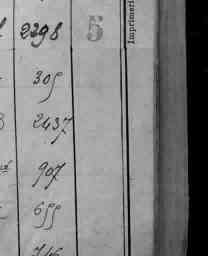 2298 5
Imprimeri
309
2437
907
699